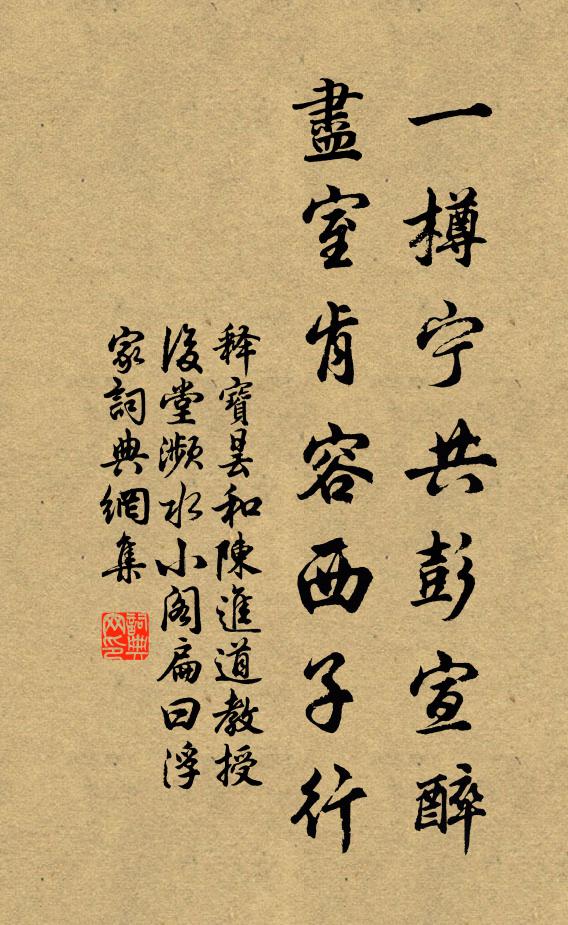 一樽宁共彭宣醉
盡室肯容西子行
释寶曇和陳進道教授
後堂瀕水小阁扁曰浮
家詞典網集
詞典
网印